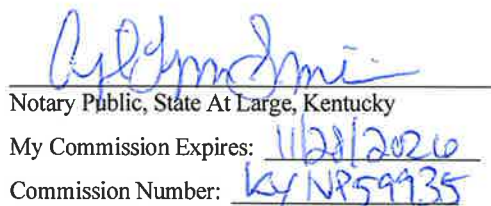 Notary Public, State At Large, Kentucky
My Commission Expires: 11/28/2026
Commission Number: KYNP59935